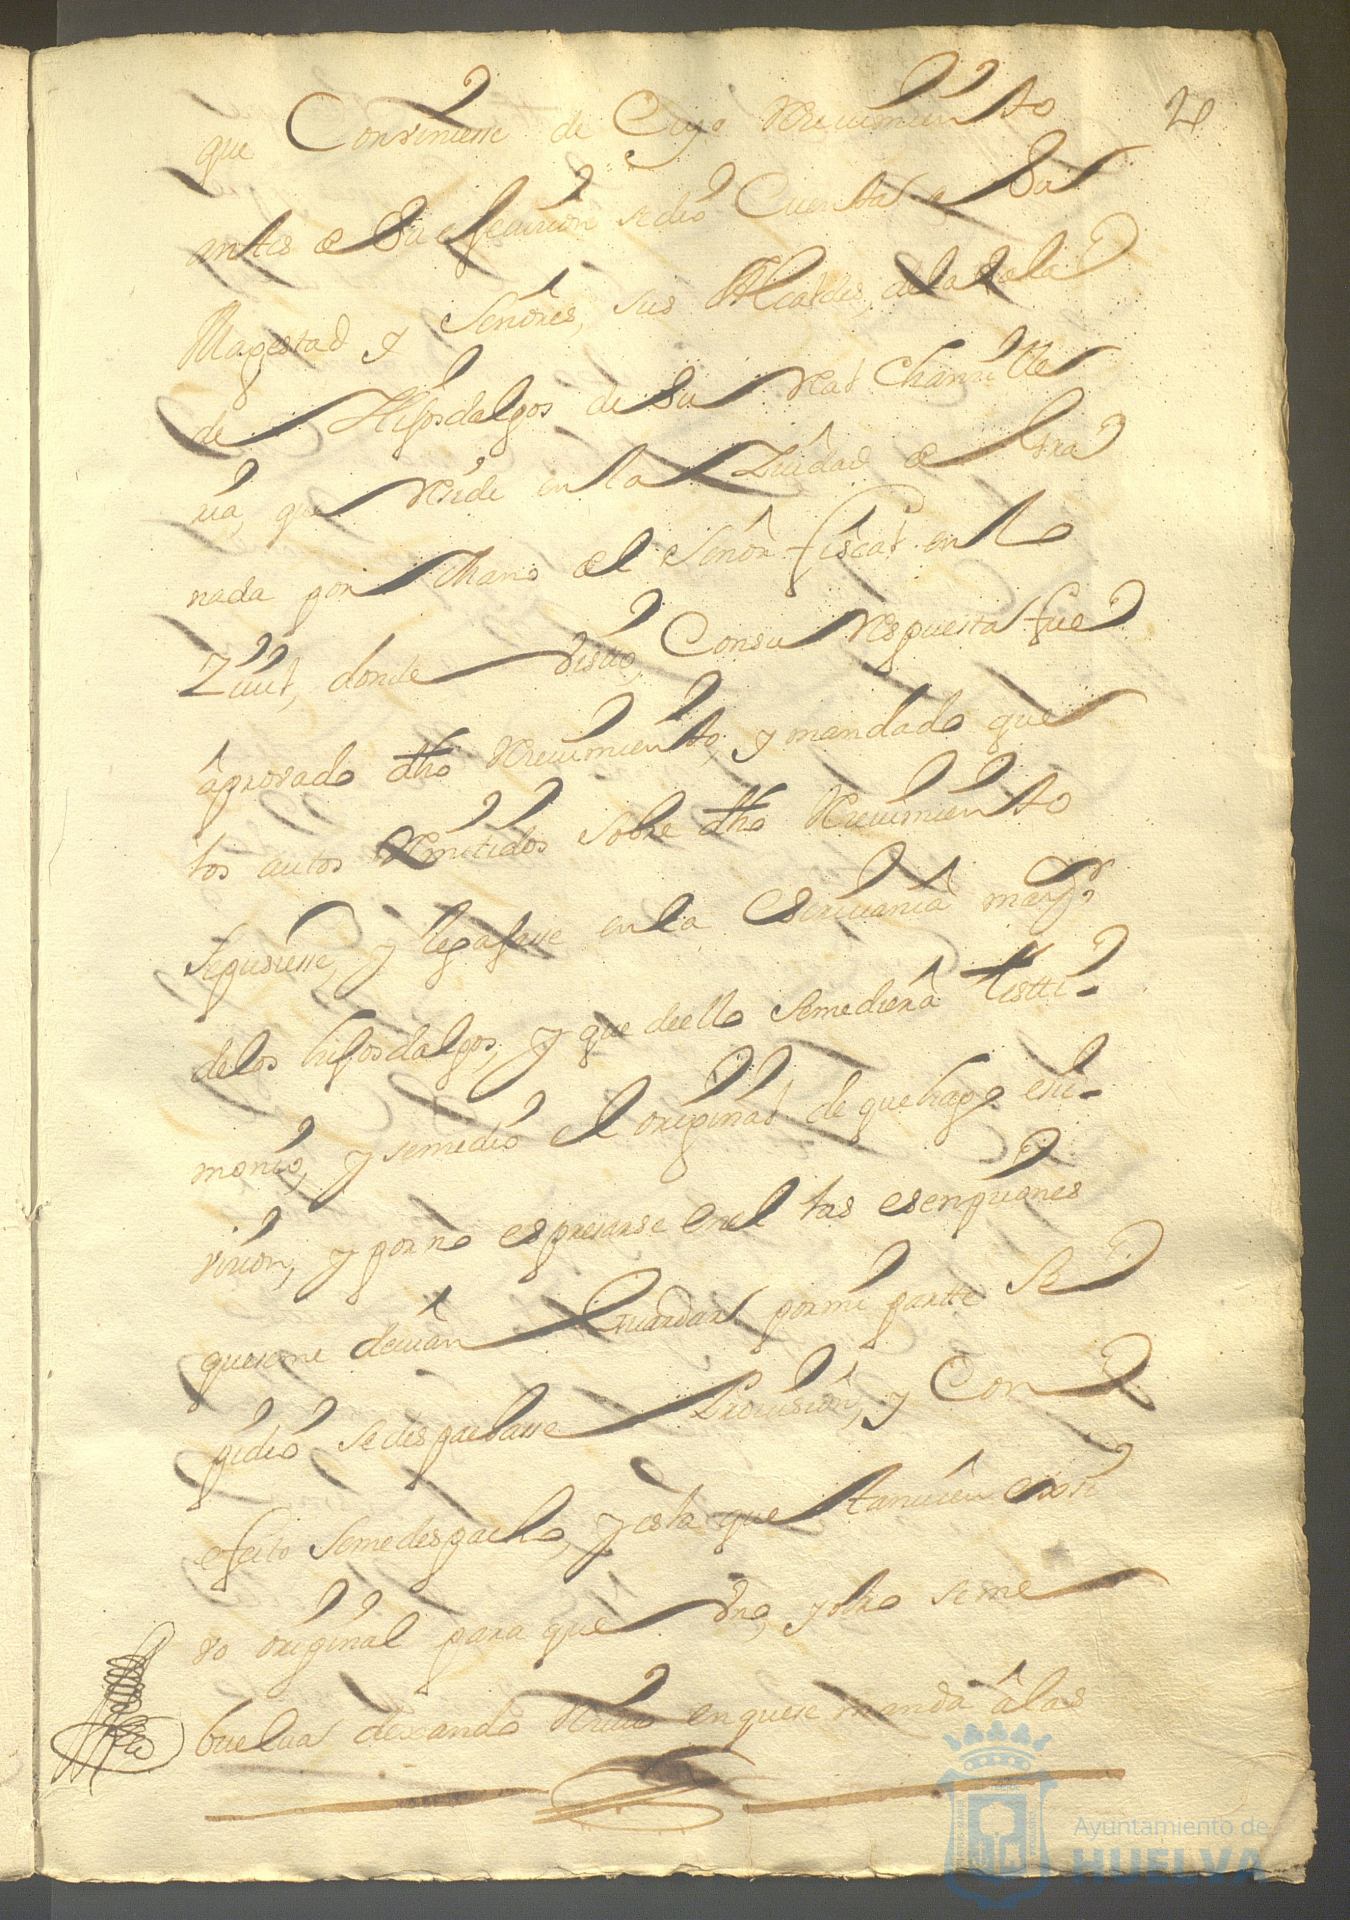 2
que Conviniesse de Cuyo Rreciuimiento
antes de Su efecuzion se dio Cuenta a Su
Magestad y Señores, sus Alcaldes, de la Sala
de Hijosdalgos de Su Real Chanzille
ria, que Rside en la Ziudad de Gra
nada por Mano del Señor fiscal en lo
Zivil, donde visto, Consu Respuesta fue
aprovado dho Rreciuimiento, y mandado que
los autos Rmitidos sobre dho Rreciuimiento
se pusiesse, y legajasse en la escriuania mayor
delos hijosdalgos, y que de ello se me diera testti-
monio, y se me dio el original de que hago exsi-
vizion, y por no espresarse en el las esempziones
que se me deuian Guardar por mi partte se
pidio se despachasse Provision, y Con
efecto se me despacho, y es la que tanvien exsivi
vo original para que vno, y otro se me
buelva dexando Rzivo en que se manda a las
Ayuntamiento de
HUELVA